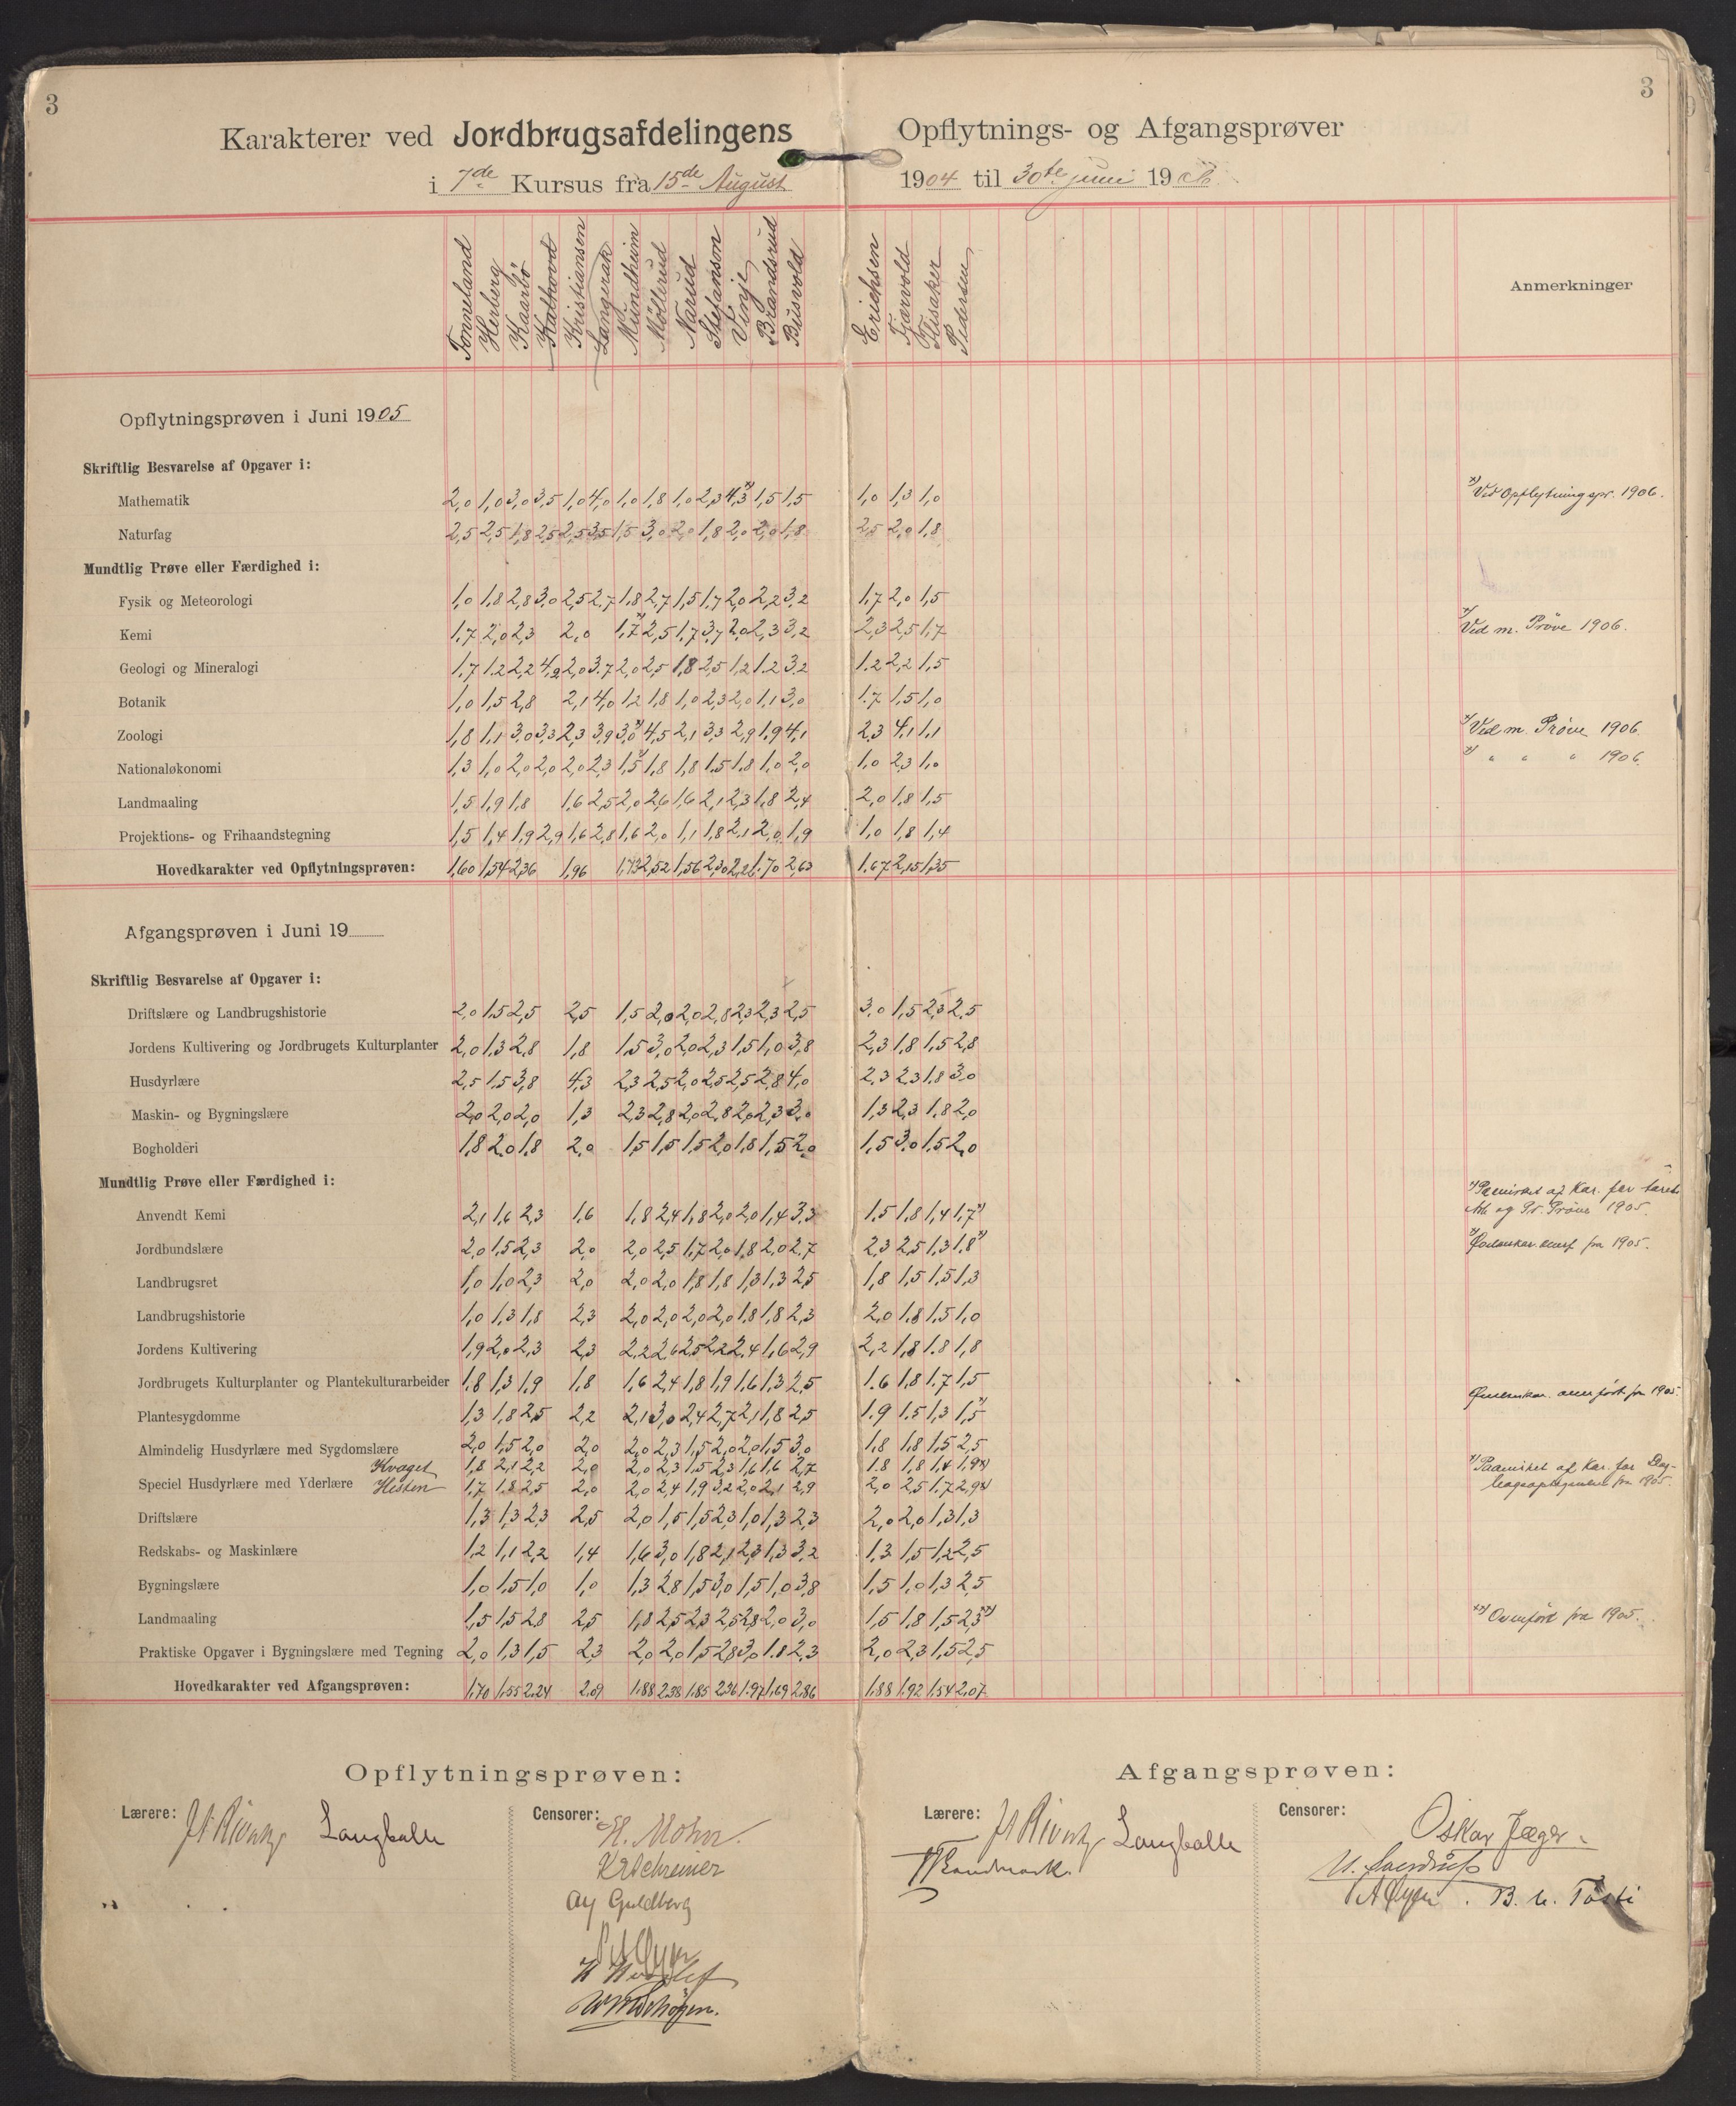 3
3
Karakterer ved Jordbrugsafdelingens Opflytnings- og Afgangsprøver
i 7de Kursus fra 15de August 1904 til 30te juni 19
Tonneland Herberg Kaarbö Kolhovd Kristiansen Langerak Mundheim Möllerud Narud Stefanson Vinje Brandsrud Busvold Erichsen Fjærvold Flisaker Pedersen Anmerkninger
Opflytningsprøven i Juni 1905
Skriftlig Besvarelse af Opgaver i:
Mathematik 2,0 1,0 3,0 3,5 1,0 4,0 1,0 1,8 1,0 2,3 4,3 x) 1,5 1,5 1,0 1,3 1,0 x) Ved Opflytningspr. 1906.
Naturfag 2,5 2,5 1,8 2,5 2,5 3,5 1,5 3,0 2,0 1,8 2,0 2,0 1,8 2,5 2,0 1,8
Mundtlig Prøve eller Færdighed i:
Fysik og Meteorologi 1,0 1,8 2,8 3,0 2,5 2,7 1,8 2,7 1,5 1,7 2,0 2,2 3,2 1,7 2,0 1,5
Kemi 1,7 2,0 2,3 2,0 1,7 x) 2,5 1,7 3,7 2,0 2,3 3,2 2,3 2,5 1,7 x) Ved m. Pröve 1906.
Geologi og Mineralogi 1,7 1.2 2,2 4,2 2,0 3.7 2,0 2,5 1,8 2,5 1,2 1.2 3.2 1.2 2,2 1,5
Botanik 1,0 1,5 2,8 2,1 4,0 1,2 1,8 1,0 2,3 2,0 1,1 3,0 1.7 1,5 1,0
Zoologi 1,8 1,1 3,0 3,3 2,3 3,9 3,0 x) 4,5 2,1 3,3 2,9 1,9 4,1 2,3 4,1 1,1 x) Ved m. Pröve 1906.
Nationaløkonomi 1,3 1,0 2,0 2,0 2,0 2,3 1,5 x) 1,8 1,8 1.5 1.8 1,0 2,0 1,0 2,3 1,0 x) " " " 1906.
Landmaaling 1,5 1,9 1,8 1,6 2,5 2,0 2,6 1,6 2,1 2,3 1,8 2,4 2,0 1,8 1,5
Projektions- og Frihaandstegning 1,5 1,4 1,9 2,9 1,6 2,8 1,6 2,0 1,1 1,8 2,1 2,0 1,9 1,0 1,8 1,4
Hovedkarakter ved Opflytningsprøven: 1,60 1,54 2,36 1,96 1,73 2,52 1,56 2,30 2,26 1.70 2,63 1.67 2,15 1,35
Afgangsprøven i Juni 19
Skriftlig Besvarelse af Opgaver i:
Driftslære og Landbrugshistorie 2,0 1,5 2,5 2,5 1,5 2,0 2,0 2,8 2,3 2,3 2,5 3,0 1,5 2,3 2,5
Jordens Kultivering og Jordbrugets Kulturplanter 2,0 1,3 2,8 1,8 1,5 3,0 2,0 2,3 1,5 1,0 3,8 2,3 1,8 1,5 2,8
Husdyrlære 2,5 1,5 3,8 4,3 2,3 2,5 2,0 2,5 2,5 2,8 4,0 2,3 2,3 1,8 3,0
Maskin- og Bygningslære 2,0 2,0 2,0 1,3 2,3 2,8 2,0 2,8 2,0 2,3 3,0 1,3 2,3 1,8 2,0
Bogholderi 1,8 2,0 1,8 2,0 1,5 1,5 1,5 2,0 1,8 1,5 2,0 1,5 3,0 1,5 2,0
Mundtlig Prøve eller Færdighed i:
Anvendt Kemi 2,1 1,6 2,3 1,6 1,8 2,4 1,8 2,0 2,0 1,4 3,3 1,5 1,8 1,4 1,7 x) x) Paavirket af Kar. for
og Pr. Pröve 1905.
Jordbundslære 2,0 1,5 2,3 2,0 2,0 2,5 1,7 2,0 1,8 2,0 2,7 2,3 2,5 1,3 1,8 x) fra 1905.
Landbrugsret 1,0 1,0 2,3 2,0 2,0 2,0 1,8 1,8 1,3 1,3 2,5 1,8 1,5 1,5 1,3
Landbrugshistorie 1,0 1,3 1,8 2,3 2,0 2,0 2,0 2,0 1,8 1,8 2,3 2,0 1,8 1,5 1,0
Jordens Kultivering 1,9 2,0 2,3 2,3 2,2 2,6 2,5 2,2 2,4 1,6 2,9 2,2 1,8 1.8 1,8
Jordbrugets Kulturplanter og Plantekulturarbeider 1,8 1,3 1,9 1,8 1,6 2,4 1,8 1,9 1,6 1,3 2,5 1.6 1,8 1,7 1,5
Plantesygdomme 1,3 1,8 2,5 2,2 2,1 3,0 2,4 2,7 2,1 1,8 2,5 1.9 1.5 1,3 1,5 x) fra 1905.
Almindelig Husdyrlære med Sygdomslære 2,0 1,5 2,0 2,0 2,0 2,3 1,5 2,0 2,0 1,5 3,0 1.8 1,8 1,5 2,5
Kvæget 1,8 2,1 2,2 2,0 2,0 2,3 1,5 2,3 1,6 1,6 2,7 1.8 1,8 1,4 1,9 x) x) Paavirket af Kar. for
Speciel Husdyrlære med Yderlære Hesten 1,7 1,8 2,5 2,0 2,0 2,4 1,9 3,2 2,0 2,1 2,9 2,0 2,5 1,7 2,9 x) fra 1905.
Driftslære 1,3 1,3 2,3 2,5 2,0 1,5 1,5 2,3 1,0 1,3 2,3 2,0 2,0 1,3 1,3
Redskabs- og Maskinlære 1,2 1,1 2,2 1,4 1,6 3,0 1,8 2,1 2,3 1,3 3,2 1,3 1,5 1,2 2,5
Bygningslære 1,0 1,5 1,0 1,0 1,3 2,8 1,5 3,0 1,5 1,0 3,8 1,5 1,0 1,3 2,5
Landmaaling 1,5 1,5 2,8 2,5 1,8 2,5 2,3 2,5 2,8 2,0 3,0 1,5 1,8 1,5 2,3 xx) xx) Overfört fra 1905.
Praktiske Opgaver i Bygningslære med Tegning 2,0 1,3 1,5 2,3 2,0 2,0 1,5 2,8 3,0 1.8 2,3 2,0 2,3 1,5 2,5
Hovedkarakter ved Afgangsprøven: 1,70 1,55 2.24 2,09 1.88 2.38 1.85 2.36 1.97 1,69 2.86 1,88 1.92 1,54 2,07
Opflytningsprøven: Afgangsprøven:
Lærere: Langballe Censorer: H. Mohn. Lærere: Langballe Censorer: Oskar Jæger.
KE Schreiner
Guldberg